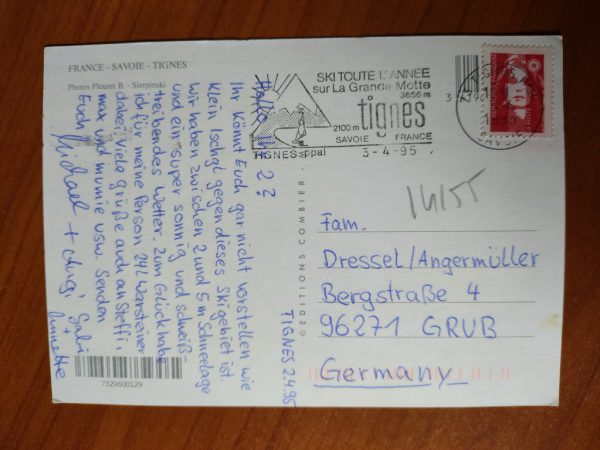 FRANCE - SAVOIE - TIGNES
Photos Fleuret B. - Sierpinski
SKI TOUTE L'ANNEE
sur La Grande Motte
3656 m
tignes
2100 m
SAVOIE FRANCE
TIGNES ppal 3-4-95
Hallo Ihr 2?
Ihr könnt Euch gar nicht vorstellen wie
klein Ischgl gegen dieses Skigebiet ist.
Wir haben zwischen 2 und 5 m Schneelage
und ein super sonnig und schweiß-
treibendes Wetter. Zum Glück habe
ich für meine Person 24 l Warsteiner
dabei. Viele grüße auch an Steffi,
max und mumie usw. Senden
Euch Michael + Angi, Gabi
+
Annette
TIGNES 2.4.95
© EDITIONS COMBIER
7329600129
14/55
Fam.
Dressel/Angermüller
Bergstraße 4
96271 GRUB
Germany